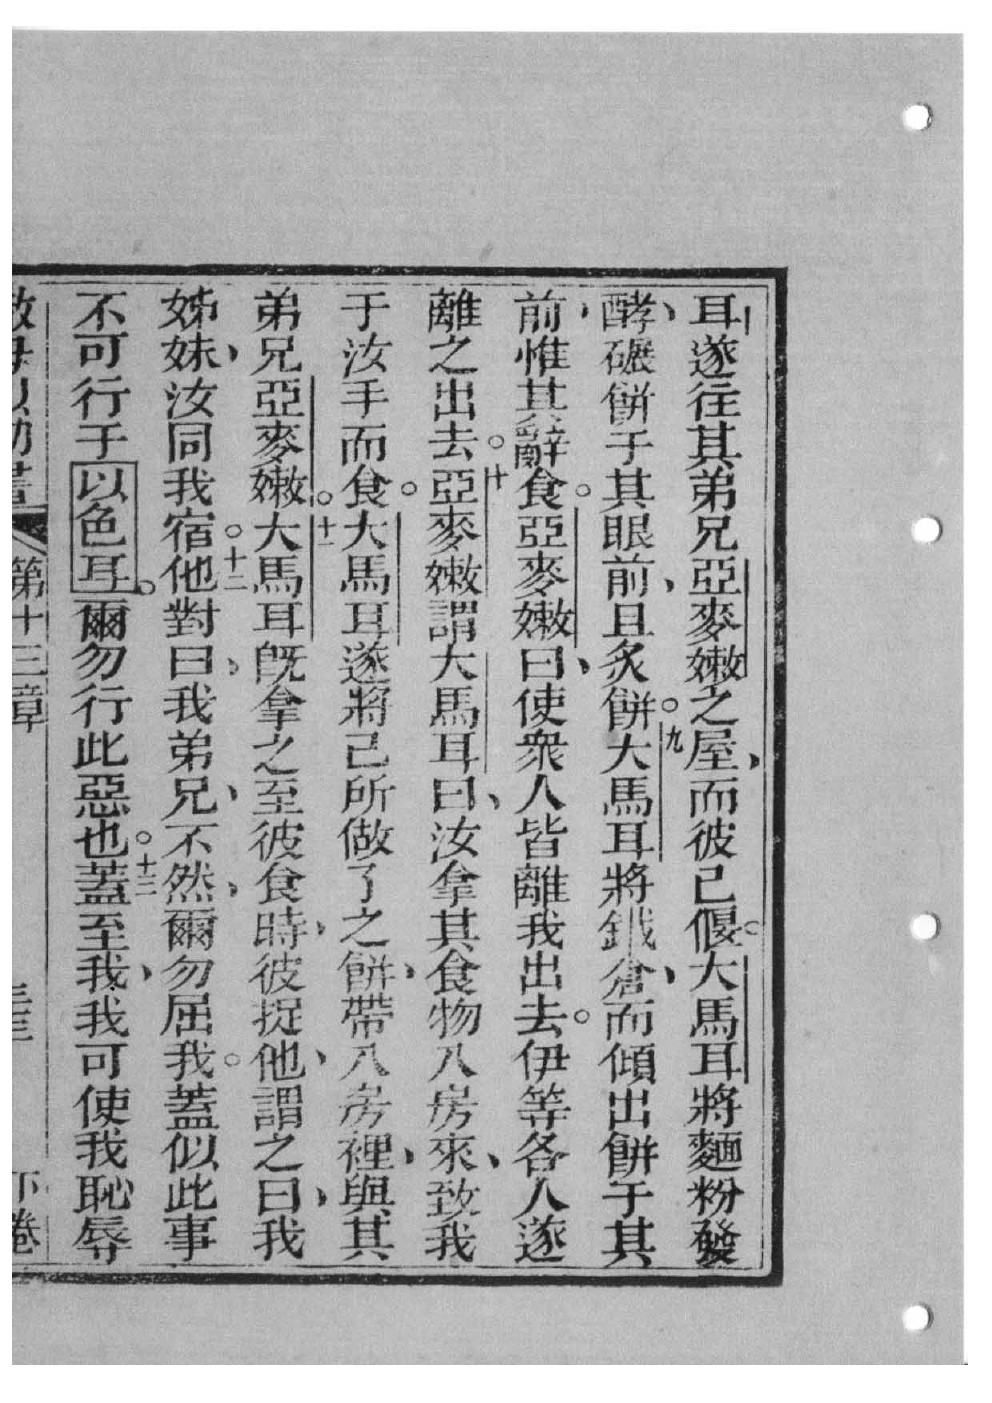 耳遂往其弟兄亞麥嫩之屋、而彼已偃。大馬耳將麵粉發
酵、碾餅于其眼前、且炙餅。九大馬耳將鐵倉、而傾出餅于其
前、惟其辭食。亞麥嫩曰、使衆人皆離我出去。伊等各人遂
離之出去。十亞麥嫩謂大馬耳曰、汝拿其食物入房來、致我
于汝手而食。大馬耳遂將己所做了之餅、帶入房裡、與其
弟兄亞麥嫩。十一大馬耳既拿之至彼食時、彼捉他、謂之曰、我
姊妹、汝同我宿。十二他對曰、我弟兄、不然、爾勿屈我。蓋似此事
不可行于以色耳。爾勿行此惡也。十三蓋至我、我可使我恥辱
第十三章
下卷